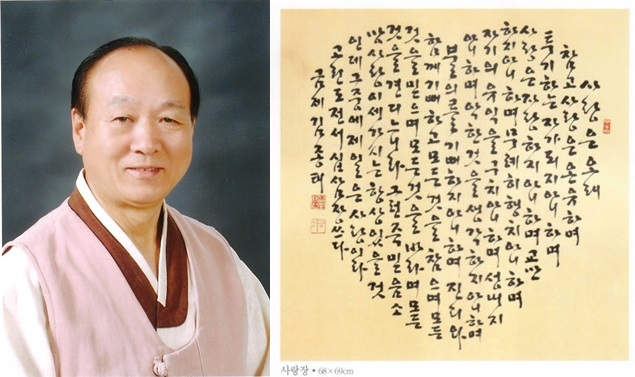 사랑은 오래
참고 사랑은 온유하며
투기하는 자가 되지 아니하며
사랑은 자랑하지 아니하며 교만
하지 아니하며 무례히 행치 아니하며
자기의 유익을 구치 아니하며 성내지
아니하며 악한 것을 생각하지 아니하며
불의를 기뻐하지 아니하며 진리와
함께 기뻐하고 모든 것을 참으며 모든
것을 믿으며 모든 것을 바라며 모든
것을 견디느니라 그런즉 믿음 소
망 사랑 이 세 가지는 항상 있을 것
인데 그 중에 제일은 사랑이라
고린도전서 십삼장 쓰다
금제 김종태
사랑장 • 68×69cm